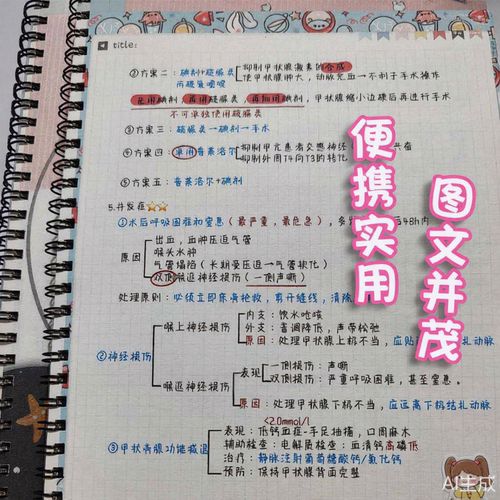 title:
②方案二：碘剂+硫脲类 抑制甲状腺激素的合成
两碗黄嘧嘧 使甲状腺肿大，动脉充血→不利于手术操作
先用碘剂 再用硫脲类，再加用碘剂，甲状腺缩小边硬后再进行手术
不可单独使用硫脲类
③方案三：硫脲类→碘剂→手术
④方案四：单用普萘洛尔 抑制甲亢患者交感神经 兴奋
抑制外周T4向T3的转化
⑤方案五：普萘洛尔+碘剂
5.并发症
①术后呼吸困难和窒息（最严重，最危急），多 后48h内
出血，血肿压迫气管
原因 喉头水肿
气管塌陷（长期受压迫→气管软化）
双侧喉返神经损伤（一侧声嘶）
处理原则：必须立即床旁抢救，剪开缝线，清除
内支：饮水呛咳
喉上神经损伤 外支：音调降低，声带松弛
原因：处理甲状腺上极不当，应贴 扎动脉
②神经损伤
表现 一侧损伤：声嘶
双侧损伤：严重呼吸困难，甚至窒息。
喉返神经损伤
原因：处理甲状腺下极不当，应远离下极结扎动脉
<2.0mmol/l
表现：低钙血症-手足抽搐，口周麻木
辅助检查：电解质检查：血清钙高磷低
③甲状旁腺功能减退 治疗：静脉注射葡萄糖酸钙/氯化钙
预防：保持甲状腺背面完整
便携实用
图文并茂
AI生成